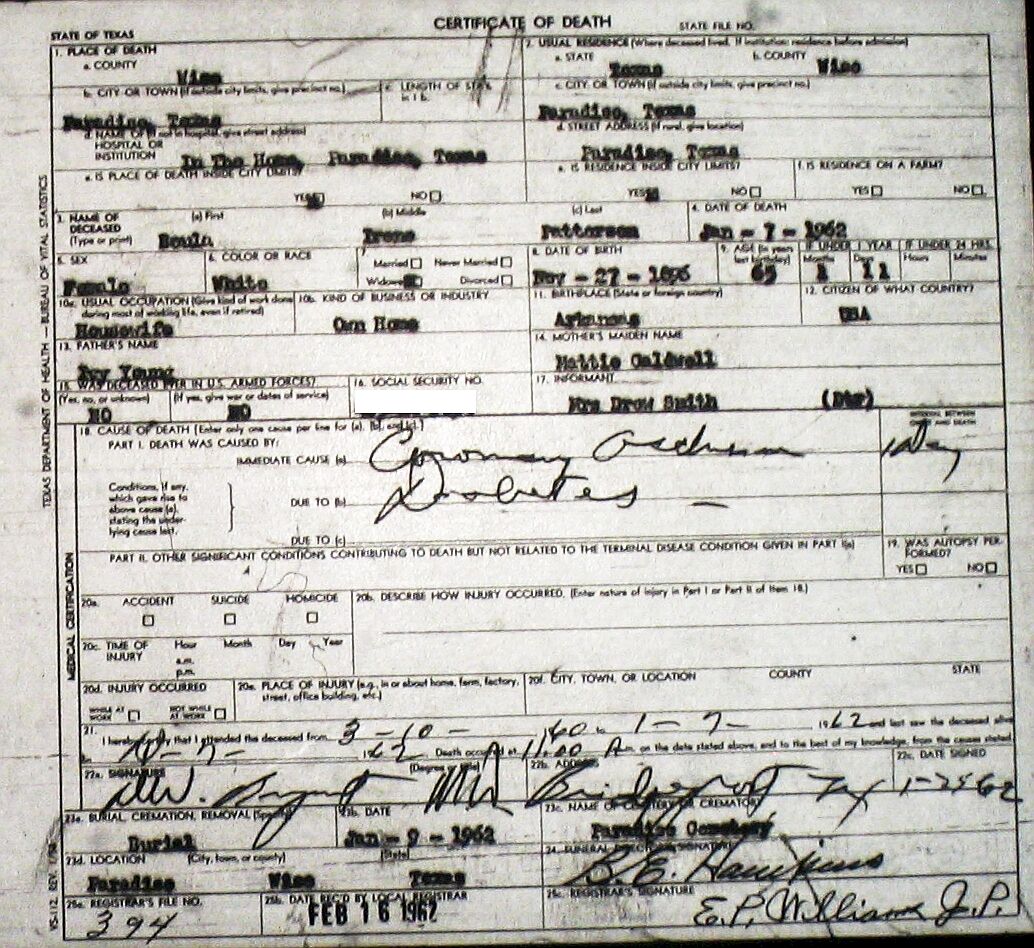 CERTIFICATE OF DEATH
STATE OF TEXAS STATE FILE NO.
1. PLACE OF DEATH 2. USUAL RESIDENCE (Where deceased lived. If institution: residence before admission)
a. COUNTY a. STATE b. COUNTY
Wise Texas Wise
b. CITY OR TOWN (If outside city limits, give precinct no.) c. LENGTH OF STAY in 1 b. c. CITY OR TOWN (If outside city limits, give precinct no.)
Paradise, Texas Paradise, Texas
d. NAME OF (If not in hospital, give street address) HOSPITAL OR INSTITUTION d. STREET ADDRESS (If rural, give location)
In The Home, Paradise, Texas Paradise, Texas
e. IS PLACE OF DEATH INSIDE CITY LIMITS? e. IS RESIDENCE INSIDE CITY LIMITS? f. IS RESIDENCE ON A FARM?
YES NO YES NO YES NO
3. NAME OF DECEASED (Type or print) (a) First (b) Middle (c) Last 4. DATE OF DEATH
Beula Irene Patterson Jan - 7 - 1962
5. SEX 6. COLOR OR RACE 7. Married Never Married Widowed Divorced 8. DATE OF BIRTH 9. AGE (In years last birthday) IF UNDER 1 YEAR Months Days IF UNDER 24 HRS. Hours Minutes
Female White Nov - 27 - 1896 65 1 11
10a. USUAL OCCUPATION (Give kind of work done during most of working life, even if retired) 10b. KIND OF BUSINESS OR INDUSTRY 11. BIRTHPLACE (State or foreign country) 12. CITIZEN OF WHAT COUNTRY?
Housewife Own Home Arkansas USA
13. FATHER'S NAME 14. MOTHER'S MAIDEN NAME
Ivy Young Mattie Caldwell
15. WAS DECEASED EVER IN U.S. ARMED FORCES? 16. SOCIAL SECURITY NO. 17. INFORMANT
(Yes, no, or unknown) (If yes, give war or dates of service)
NO NO Mrs Drew Smith (Dtr)
18. CAUSE OF DEATH (Enter only one cause per line for (a), (b), and (c).) INTERVAL BETWEEN ONSET AND DEATH
PART I. DEATH WAS CAUSED BY:
IMMEDIATE CAUSE (a) Coronary Occlusion 1 Day
Conditions, if any, which gave rise to above cause (a), stating the underlying cause last.
DUE TO (b) Diabetes —
DUE TO (c)
PART II. OTHER SIGNIFICANT CONDITIONS CONTRIBUTING TO DEATH BUT NOT RELATED TO THE TERMINAL DISEASE CONDITION GIVEN IN PART I(a) 19. WAS AUTOPSY PERFORMED?
YES NO
20a. ACCIDENT SUICIDE HOMICIDE 20b. DESCRIBE HOW INJURY OCCURRED. (Enter nature of injury in Part I or Part II of item 18.)
20c. TIME OF INJURY Hour Month Day Year
a.m.
p.m.
20d. INJURY OCCURRED 20e. PLACE OF INJURY (e.g., in or about home, farm, factory, street, office building, etc.) 20f. CITY, TOWN, OR LOCATION COUNTY STATE
WHILE AT WORK NOT WHILE AT WORK
21. I hereby certify that I attended the deceased from 3-10- 1960 to 1-7- 1962 and last saw the deceased alive
1962 Death occurred at 11:00 A m. on the date stated above, and to the best of my knowledge, from the causes stated.
22a. SIGNATURE (Degree or title) 22b. ADDRESS 22c. DATE SIGNED
Bridgeport Tex
23a. BURIAL, CREMATION, REMOVAL (Specify) 23b. DATE 23c. NAME OF CEMETERY OR CREMATORY
Burial Jan - 9 - 1962 Paradise Cemetery
23d. LOCATION (City, town, or county) (State) 24. FUNERAL DIRECTOR'S SIGNATURE
Paradise Wise Texas B.E. Hawkins
25a. REGISTRAR'S FILE NO. 25b. DATE REC'D BY LOCAL REGISTRAR 25c. REGISTRAR'S SIGNATURE
394 FEB 16 1962 E.P. Williams J.P.
TEXAS DEPARTMENT OF HEALTH — BUREAU OF VITAL STATISTICS
MEDICAL CERTIFICATION